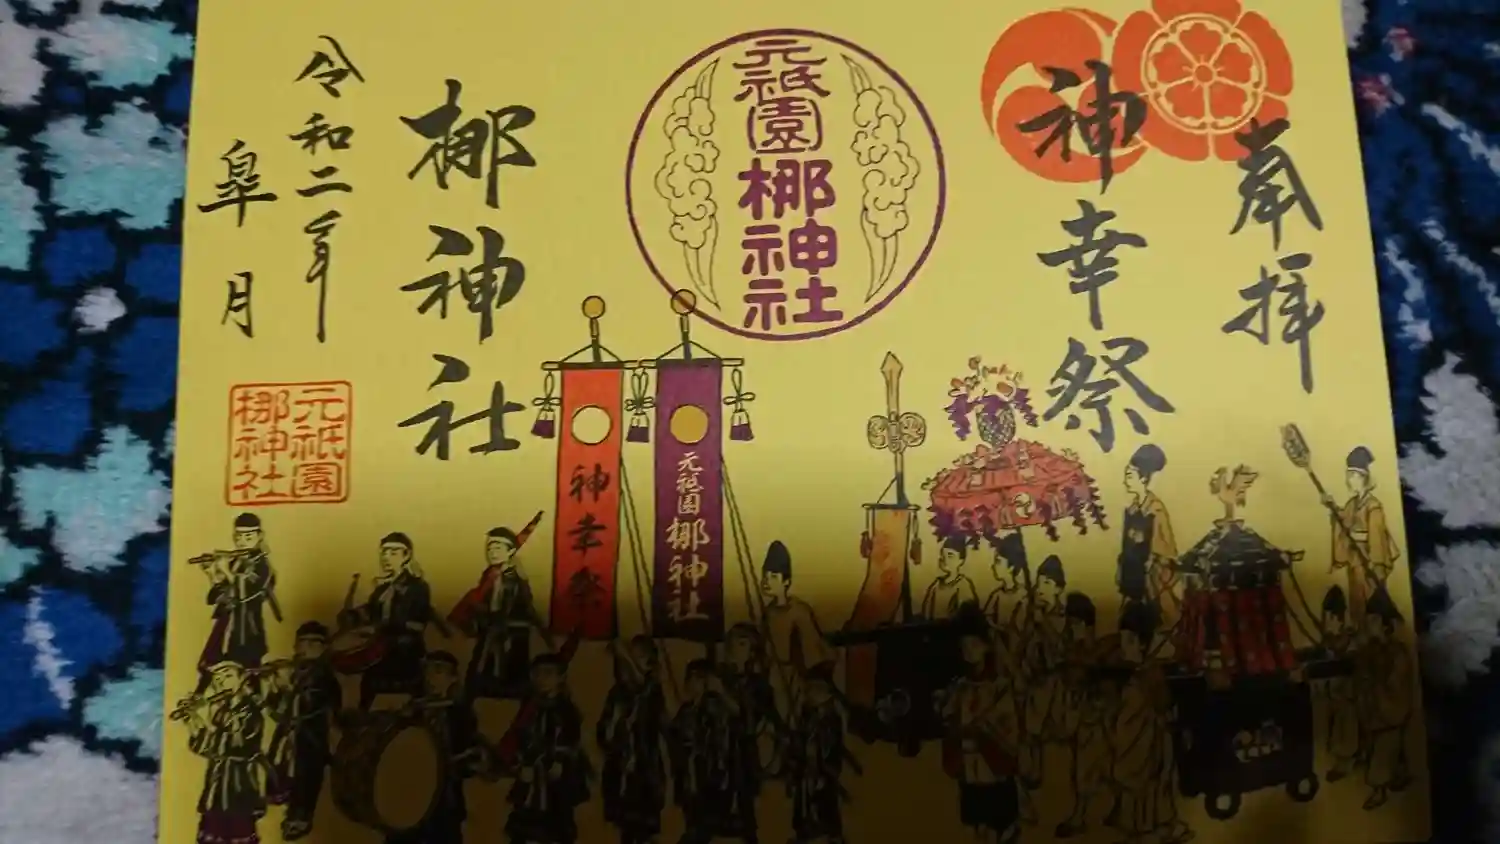 奉拝
神幸祭
元祇園
梛神社
梛神社
令和二年
皐月
元祇園
梛神社
元祇園梛神社
神幸祭